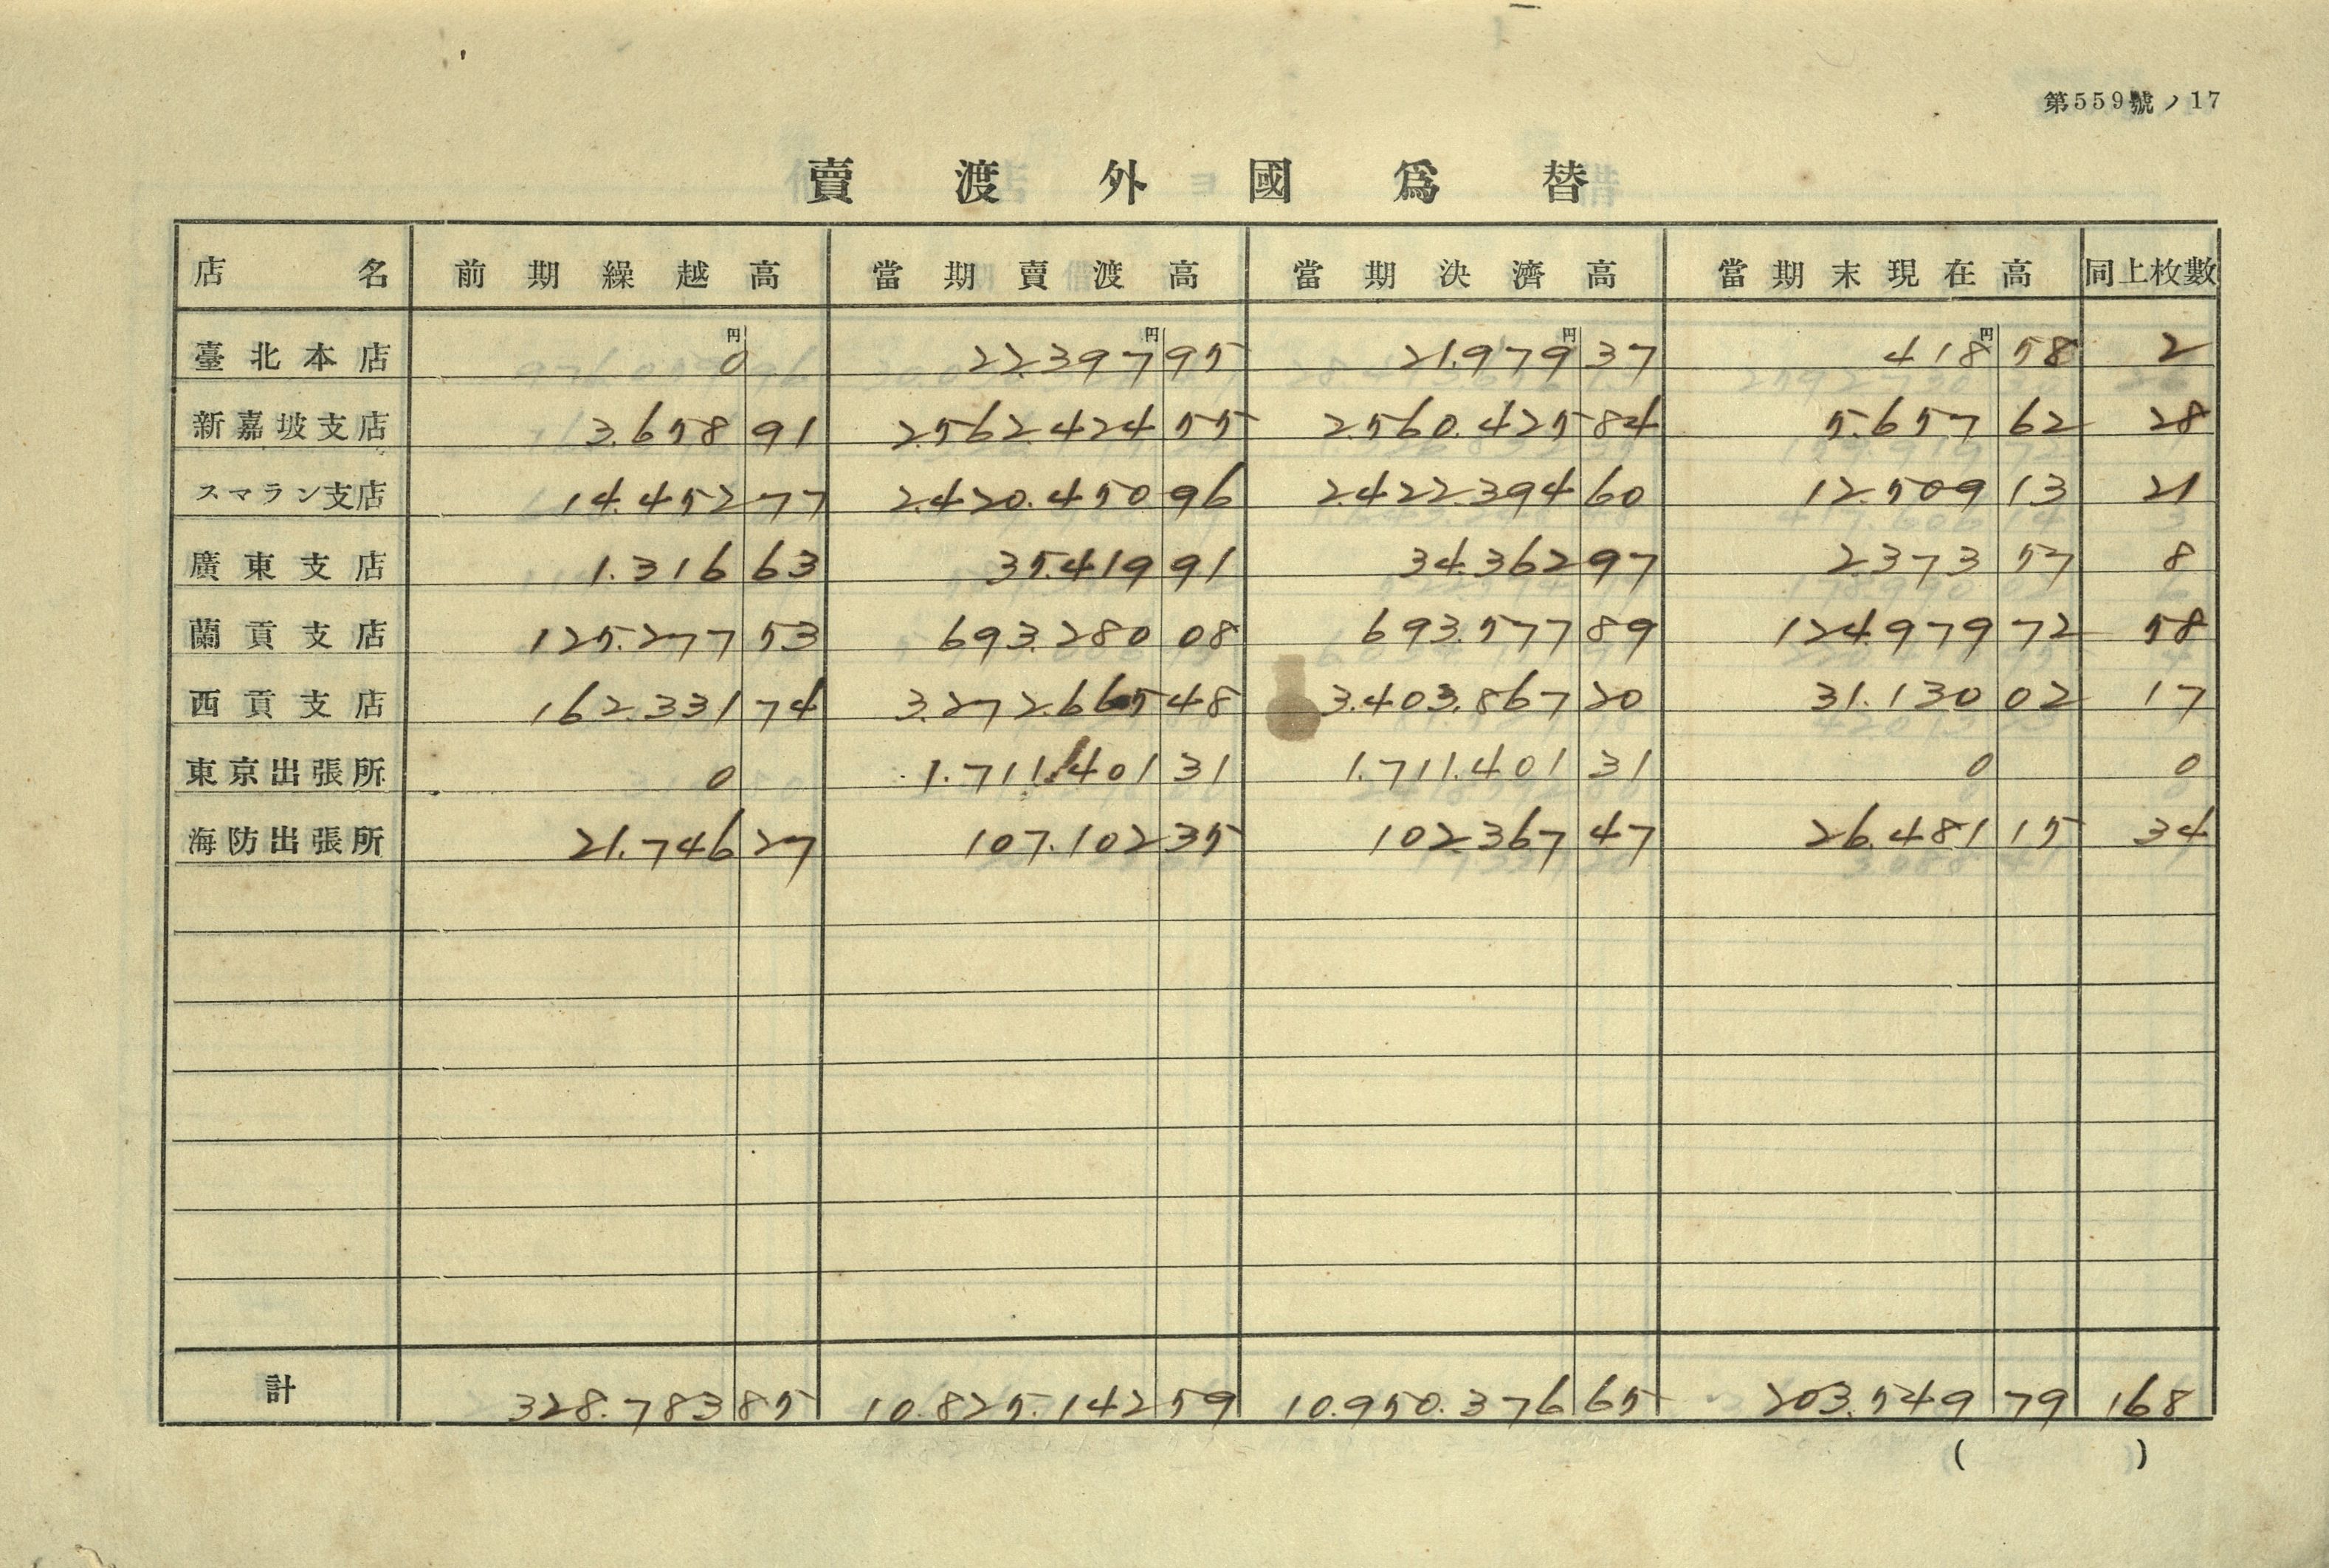 第559號ノ17
賣渡外國爲替
店名 前期繰越高 當期賣渡高 當期決濟高 當期末現在高 同上枚數
円 円 円 円
臺北本店 0 22.397 95 21.979 37 418 58 2
新嘉坡支店 3.658 91 2.562.424 55 2.560.425 84 5.657 62 28
スマラン支店 14.452 77 2.420.450 96 2.422.394 60 12.509 13 21
廣東支店 1.316 63 35.419 91 34.362 97 2.373 57 8
蘭貢支店 125.277 53 693.280 08 693.577 89 124.979 72 58
西貢支店 162.331 74 3.272.665 48 3.403.867 20 31.130 02 17
東京出張所 0 1.711.401 31 1.711.401 31 0 0
海防出張所 21.746 27 107.102 35 102.367 47 26.481 15 34
計 328.783 85 10.825.142 59 10.950.376 65 203.549 79 168
( )